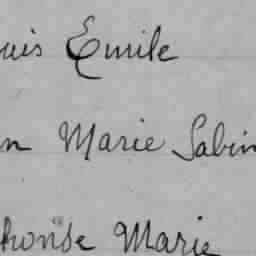 uis Emile
n Marie Sabin
honse Marie